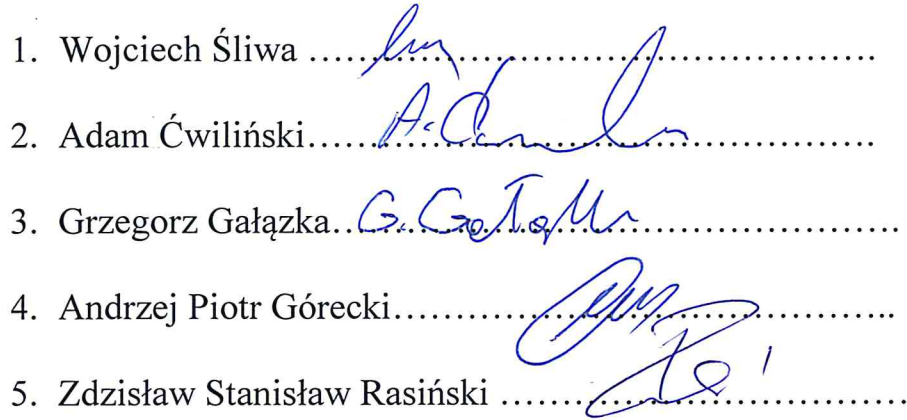 1. Wojciech Śliwa ......................................................
2. Adam Ćwiliński......................................................
3. Grzegorz Gałązka.. G. Gałązka ..............................
4. Andrzej Piotr Górecki.............................................
5. Zdzisław Stanisław Rasiński ....................................